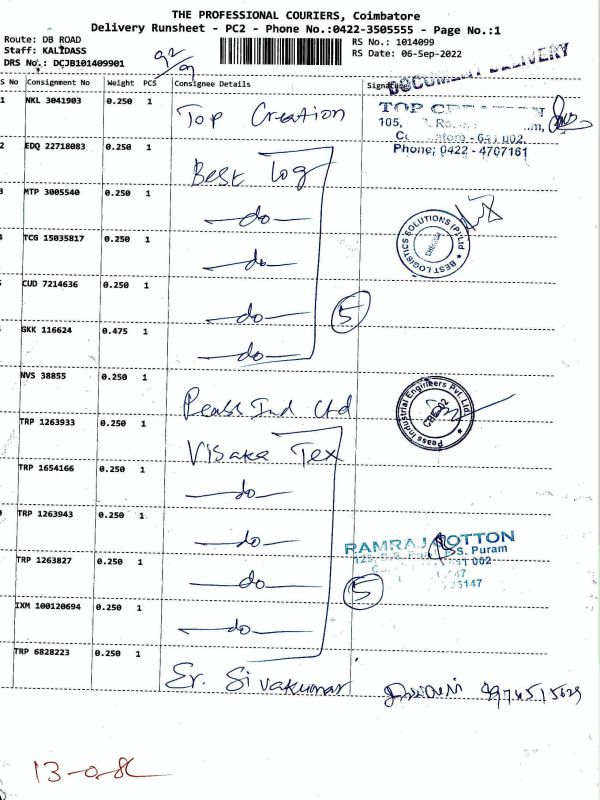 THE PROFESSIONAL COURIERS, Coimbatore
Delivery Runsheet - PC2 - Phone No.:0422-3505555 - Page No.:1
Route: DB ROAD
Staff: KALIDASS
DRS No.: DCJB101409901
RS No.: 1014099
RS Date: 06-Sep-2022
DOCUMENT DELIVERY
S No Consignment No Weight PCS Consignee Details Signature
1 NKL 3041903 0.250 1 Top Creation
TOP CREATION
105,
641 002.
Phone; 0422 - 4707161
2 EDQ 22718083 0.250 1 Best Log
3 MTP 3005540 0.250 1 —do—
TCG 15035817 0.250 1 —do—
BEST LOGISTICS SOLUTIONS (P) Ltd
CUD 7214636 0.250 1 —do—
5
GKK 116624 0.475 1 —do—
NVS 38855 0.250 1 Peass Ind Ltd
Peass Industrial Engineers Pvt. Ltd.
TRP 1263933 0.250 1 Visaka Tex
TRP 1654166 0.250 1 —do—
TRP 1263943 0.250 1 —do—
RAMRAJ COTTON
S. Puram
TRP 1263827 0.250 1 —do—
5
IXM 100120694 0.250 1 —do—
TRP 6828223 0.250 1 Er. Sivakumar